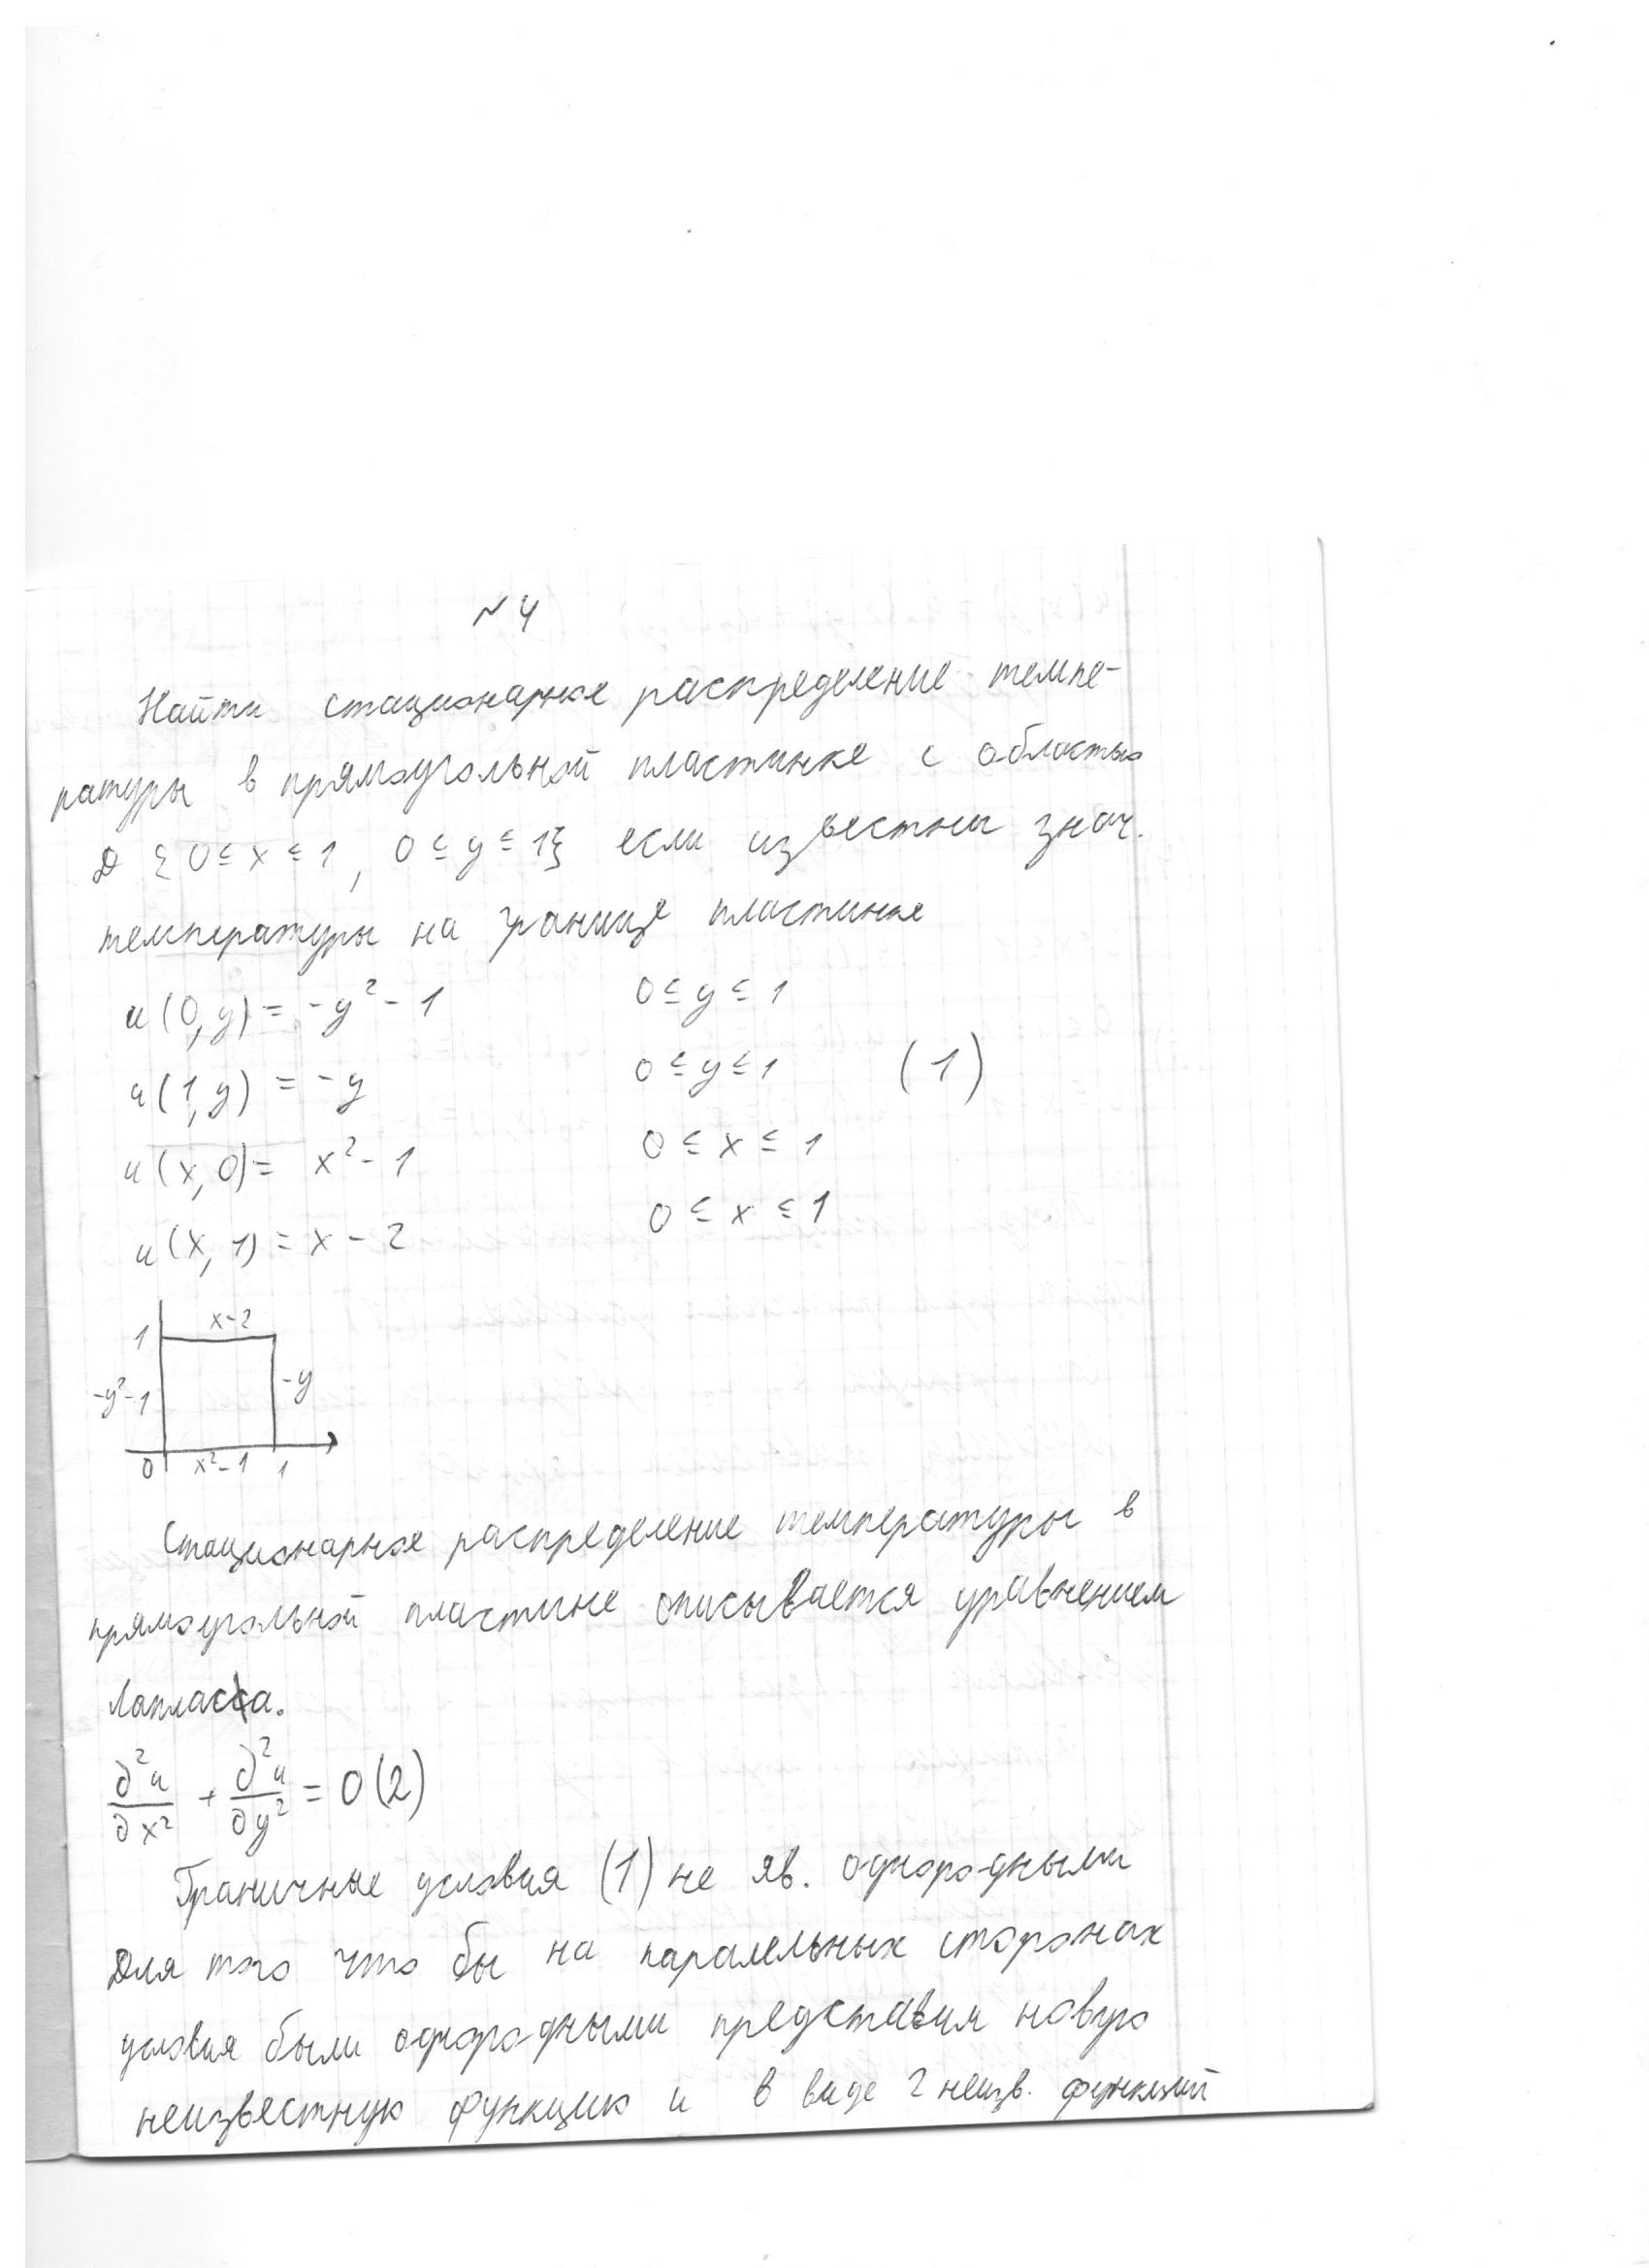 № 4
Найти стационарное распределение темпе-
ратуры в прямоугольной пластинке с областью
D {0 ≤ x ≤ 1, 0 ≤ y ≤ 1} если известны знач.
температуры на границе пластинке
u(0,y) = -y² - 1 0 ≤ y ≤ 1
u(1,y) = -y 0 ≤ y ≤ 1 (1)
u(x,0) = x² - 1 0 ≤ x ≤ 1
u(x,1) = x - 2 0 ≤ x ≤ 1
x-2
1
-y²-1 -y
0 x²-1 1
Стационарное распределение температуры в
прямоугольной пластине описывается уравнением
Лапласса.
∂²u/∂x² + ∂²u/∂y² = 0 (2)
Граничные условия (1) не яв. однородными
Для того что бы на паралельных сторонах
условия были однородными представим новую
неизвестную функцию u в виде 2 неизв. функций